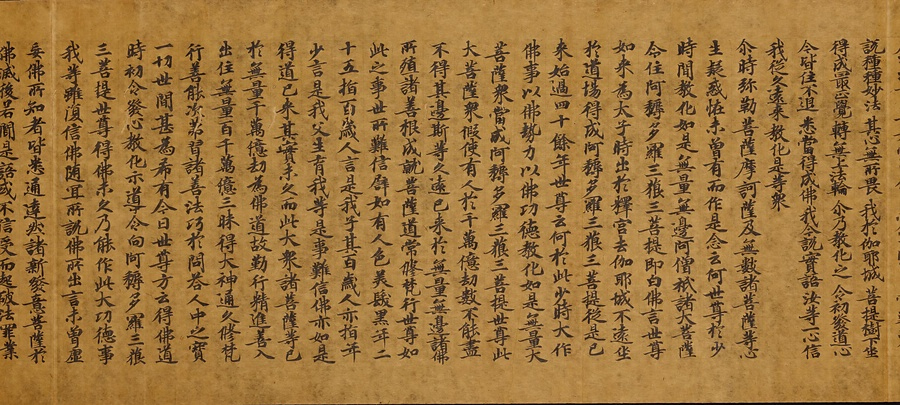 說種種妙法 其心無所畏 我於伽耶城 菩提樹下坐
得成最正覺 轉無上法輪 尒乃教化之 令初發道心
今皆住不退 悉當得成佛 我今說實語 汝等一心信
我從久遠來 教化是等衆
尒時弥勒菩薩摩訶薩及無數諸菩薩等心
生疑惑怪未曾有而作是念云何世尊於少
時間教化如是無量無邊阿僧祇諸大菩薩
令住阿耨多羅三藐三菩提即白佛言世尊
如來為太子時出於釋宮去伽耶城不遠坐
於道場得成阿耨多羅三藐三菩提從是已
來始過四十餘年世尊云何於此少時大作
佛事以佛勢力以佛功德教化如是無量大
菩薩衆當成阿耨多羅三藐三菩提世尊此
大菩薩衆假使有人於千萬億劫數不能盡
不得其邊斯等久遠已來於無量無邊諸佛
所殖諸善根成就菩薩道常修梵行世尊如
此之事世所難信譬如有人色美髮黑年二
十五指百歲人言是我子其百歲人亦指年
少言是我父生育我等是事難信佛亦如是
得道已來其實未久而此大衆諸菩薩等已
於無量千萬億劫為佛道故勤行精進善入
出住無量百千萬億三昧得大神通久修梵
行善能次第習諸善法巧於問答人中之寶
一切世間甚為希有今日世尊方云得佛道
時初令發心教化示道令向阿耨多羅三藐
三菩提世尊得佛未久乃能作此大功德事
我等雖復信佛隨宜所說佛所出言未曾虛
妄佛所知者皆悉通達然諸新發意菩薩於
佛滅後若聞是語或不信受而起破法罪業